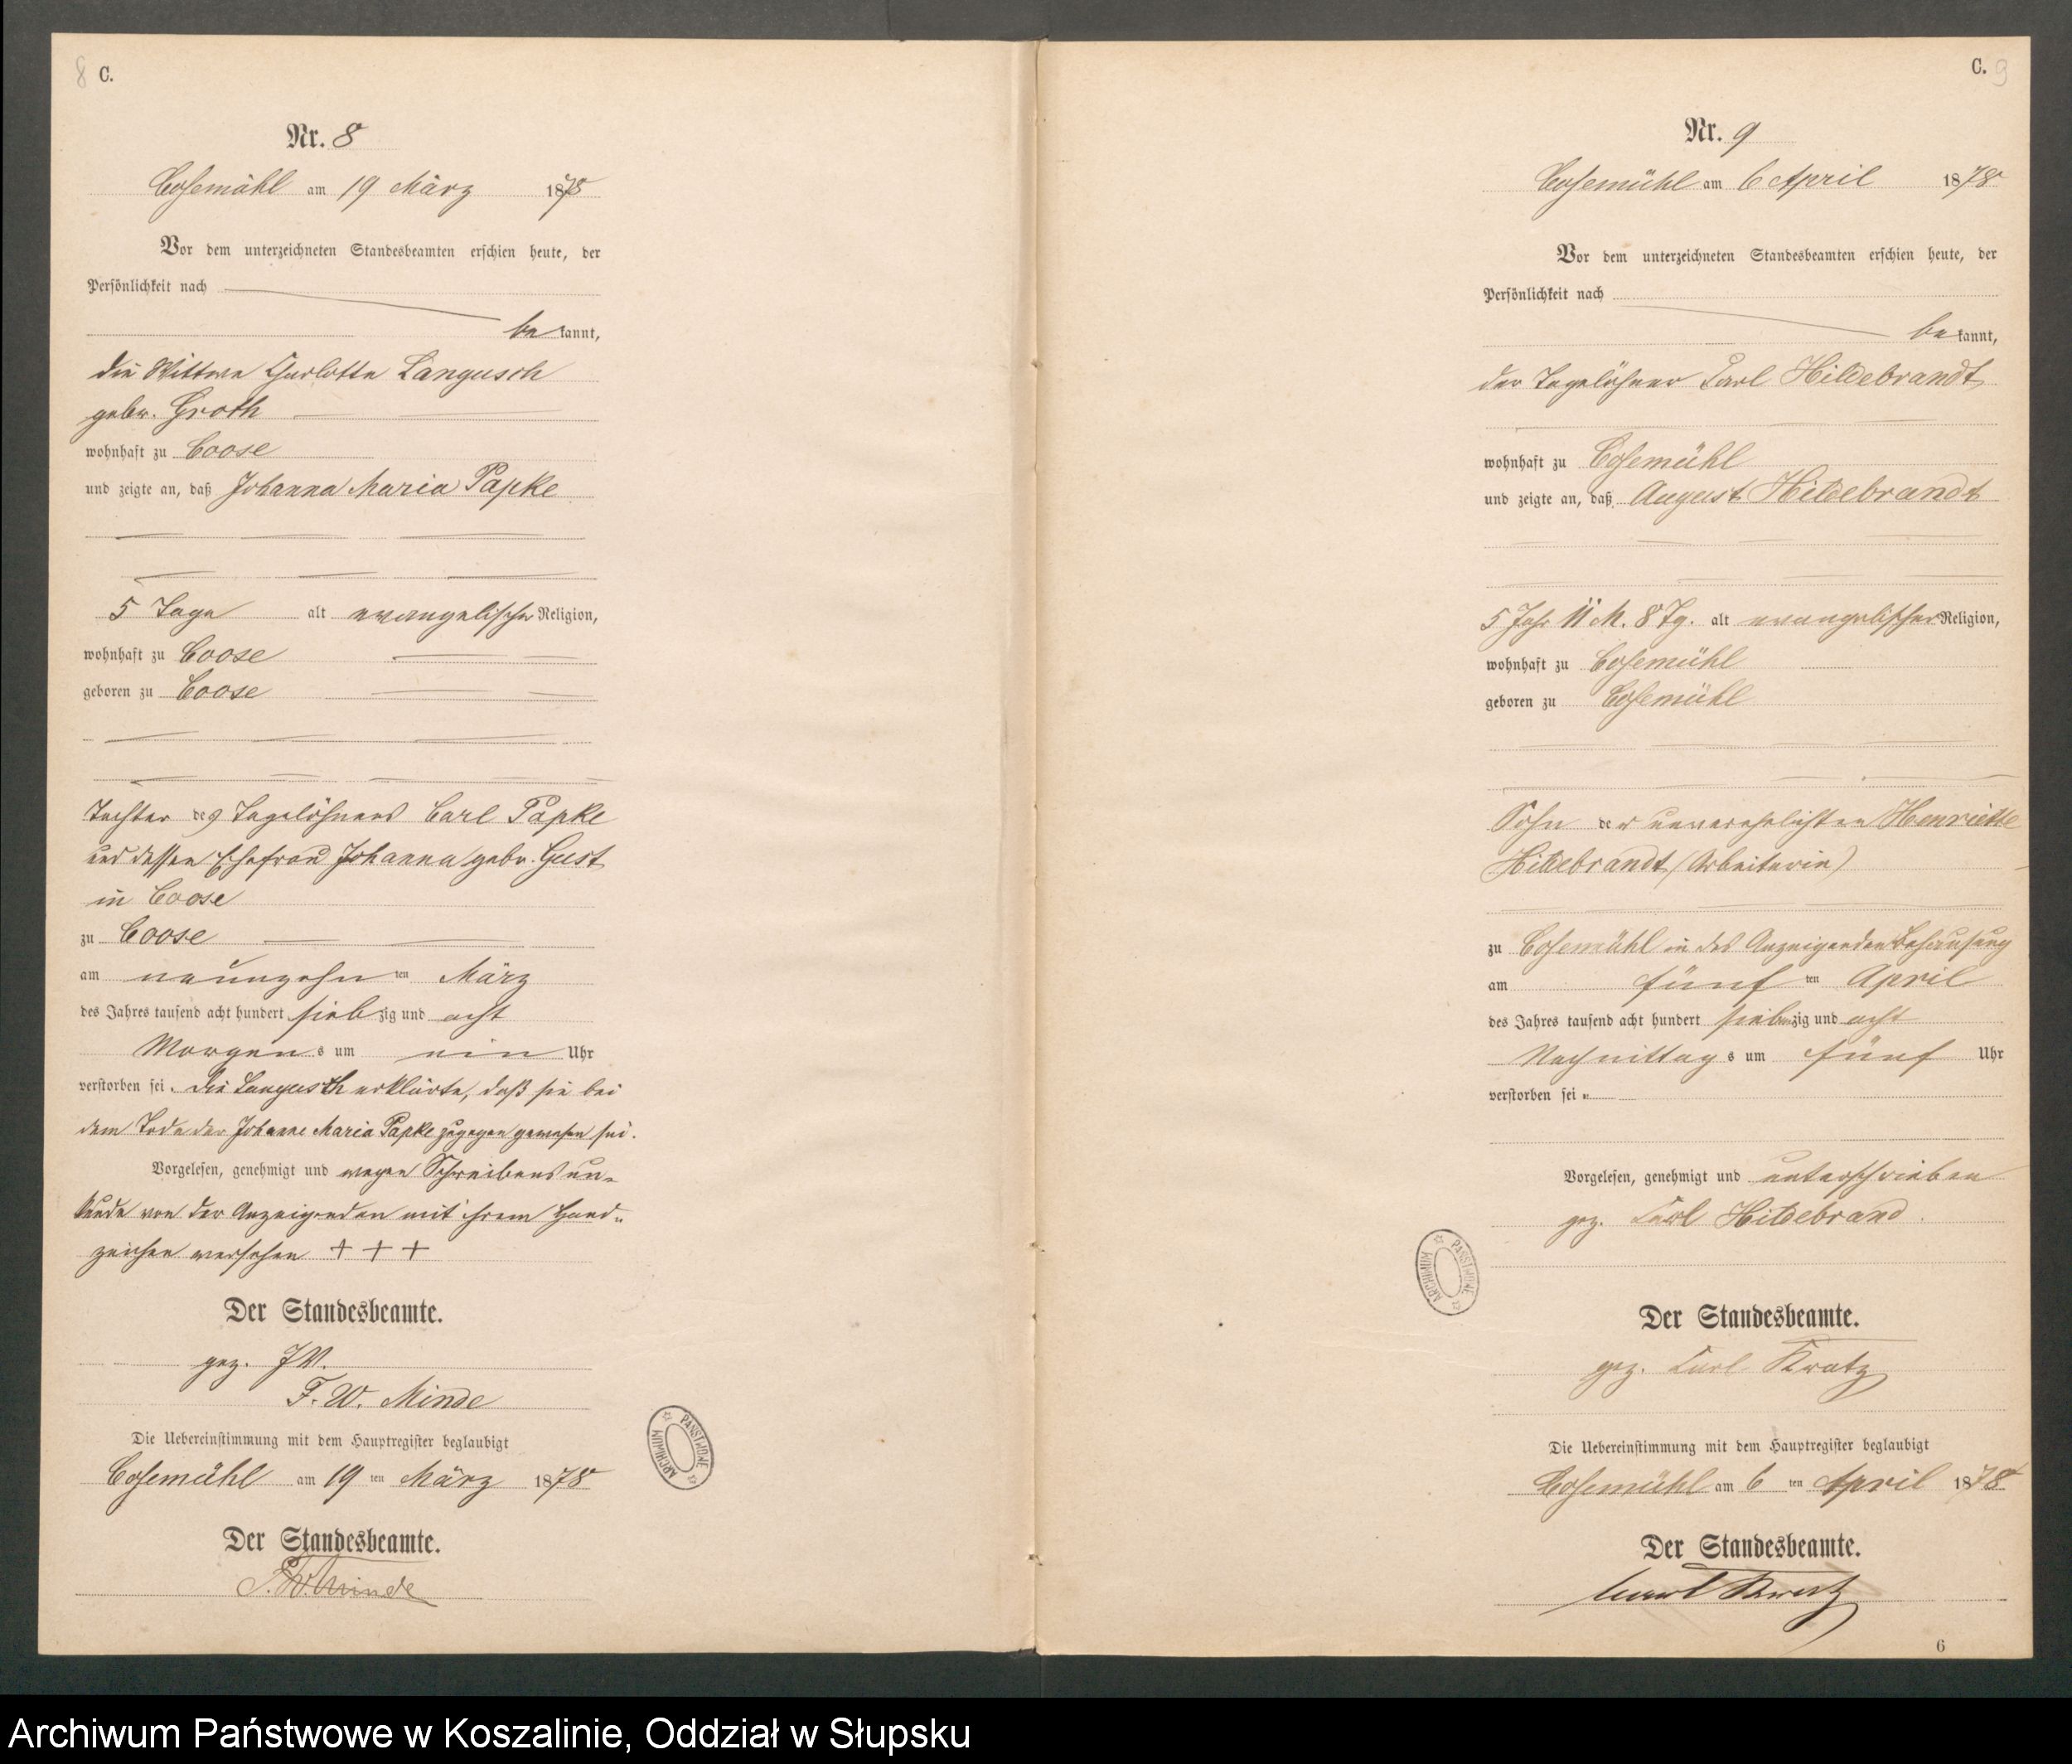 8 C.
Nr. 8
Cosemühl am 19 März 1878
Vor dem unterzeichneten Standesbeamten erschien heute, der
Persönlichkeit nach
be kannt,
die Wittwe Charlotte Langusch
gebr. Groth
wohnhaft zu Coose
und zeigte an, daß Johanna Maria Papke
5 Tage alt evangelischer Religion,
wohnhaft zu Coose
geboren zu Coose
Tochter des Tagelöhners Carl Papke
und dessen Ehefrau Johanna gebr. Gust
in Coose
zu Coose
am neunzehn ten März
des Jahres tausend acht hundert siebzig und acht
Morgens um ein Uhr
verstorben sei. Die Langusch erklärte, daß sie bei
dem Tode der Johanne Maria Papke zugegen gewesen sei.
Vorgelesen, genehmigt und wegen Schreibensun-
kunde von der Anzeigenden mit ihrem Hand-
zeichen versehen + + +
Der Standesbeamte.
gez. J.V.
F. W. Minde
Die Uebereinstimmung mit dem Hauptregister beglaubigt
Cosemühl am 19 ten März 1878
Der Standesbeamte.
F. W. Minde
ARCHIWUM PAŃSTWOWE
C. 9
Nr. 9
Cosemühl am 6 April 1878
Vor dem unterzeichneten Standesbeamten erschien heute, der
Persönlichkeit nach
be kannt,
der Tagelöhner Carl Hildebrandt
wohnhaft zu Cosemühl
und zeigte an, daß August Hildebrandt
5 Jahr 11 M. 8 Tg. alt evangelischer Religion,
wohnhaft zu Cosemühl
geboren zu Cosemühl
Sohn der unverehelichten Henriette
Hildebrandt (Arbeiterin)
zu Cosemühl in des Anzeigenden Behausung
am fünf ten April
des Jahres tausend acht hundert siebenzig und acht
Nachmittags um fünf Uhr
verstorben sei.
Vorgelesen, genehmigt und unterschrieben
gez. Carl Hildebrand.
ARCHIWUM PAŃSTWOWE
Der Standesbeamte.
gez. Carl Kratz
Die Uebereinstimmung mit dem Hauptregister beglaubigt
Cosemühl am 6 ten April 1878
Der Standesbeamte.
Carl Kratz
6
Archiwum Państwowe w Koszalinie, Oddział w Słupsku